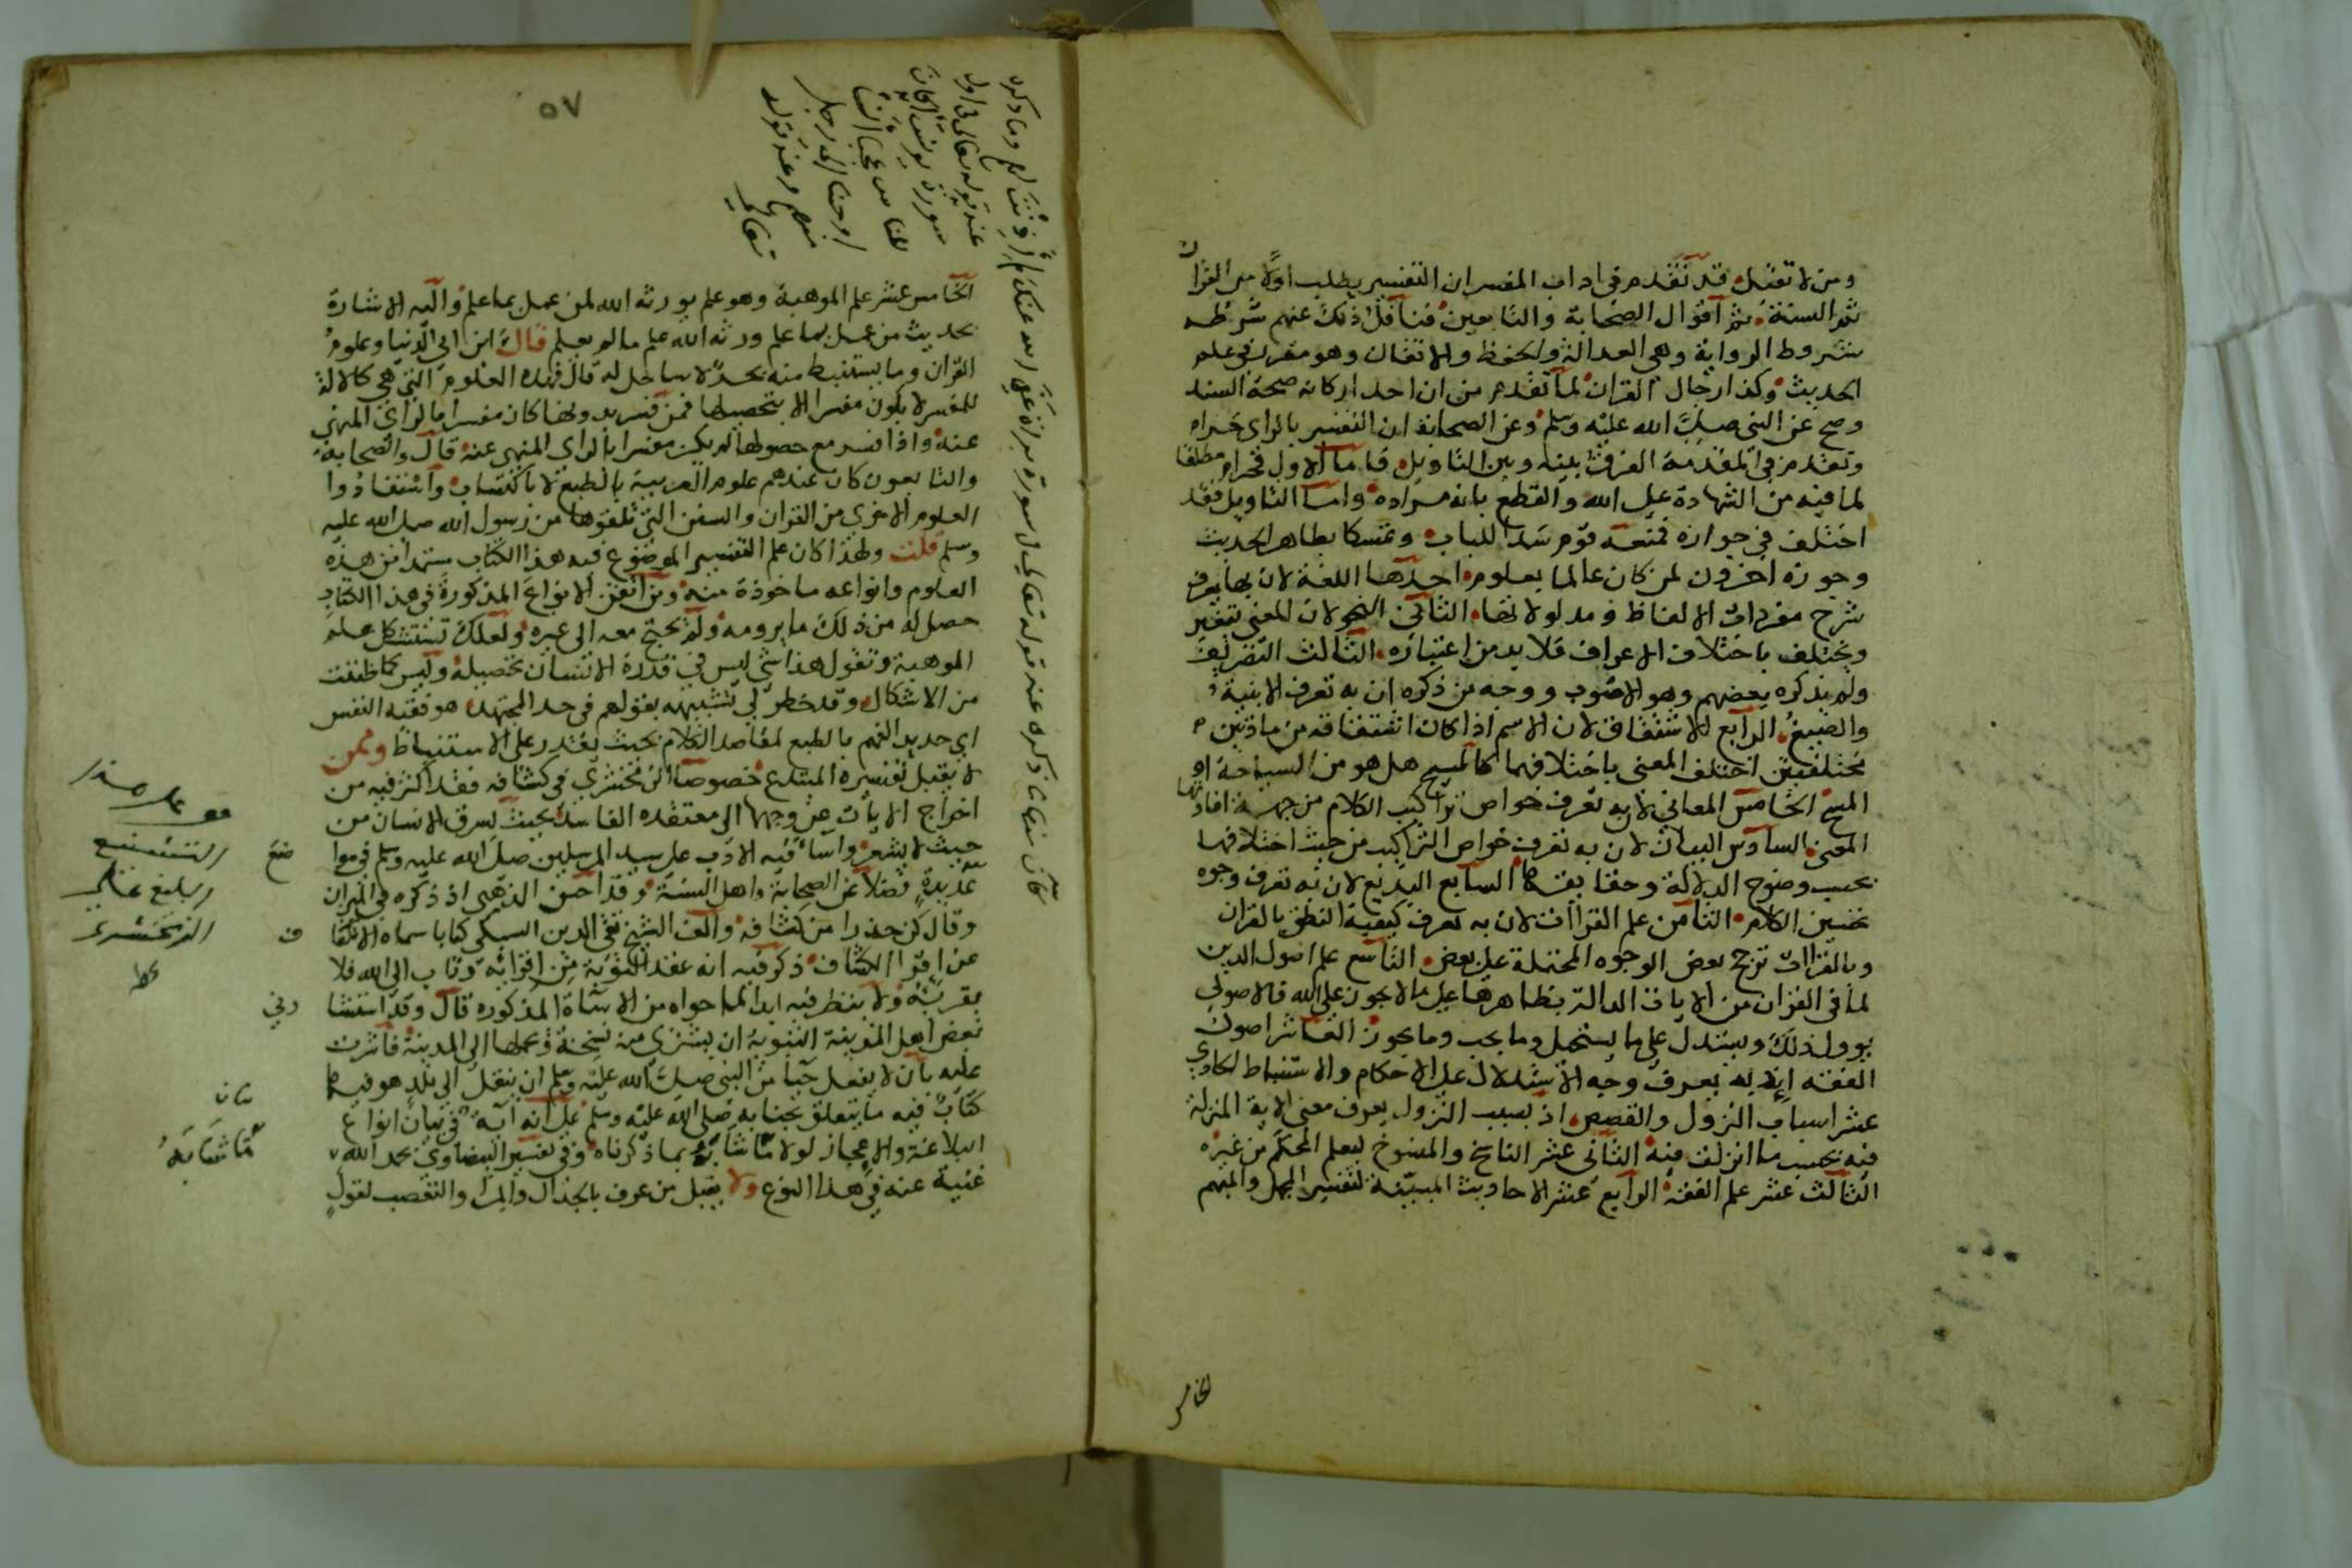 ومن لا تقبل قد تقدم في اداب المفسر ان التفسير يطلب اولا من القران
ثم السنة ثم اقوال الصحابة والتابعين فناقل ذلك عنهم شرطه
شروط الرواية وهي العدالة والحفظ والاتقان وهو مقرر في علم
الحديث وكذا رجال القران لما تقدم من ان احد اركانه صحة السند
وصح عن النبي صلى الله عليه وسلم وعن الصحابة ان التفسير بالراي حرام
وتقدم في المقدمة الفرق بينه وبين التاويل فاما الاول فحرام مطلقا
لما فيه من الشهادة على الله والقطع بانه مراده واما التاويل فقد
اختلف في جوازه فمنعه قوم سدا للباب وتمسكا بظاهر الحديث
وجوزه اخرون لمن كان عالما بعلوم احدها اللغة لان بها يعرف
شرح مفردات الالفاظ ومدلولاتها الثاني النحو لان المعنى يتغير
ويختلف باختلاف الاعراب فلا بد من اعتباره الثالث التصريف
ولم يذكره بعضهم وهو الاصوب ووجه من ذكره ان به تعرف الابنية
والصيغ الرابع الاشتقاق لان الاسم اذا كان اشتقاقه من مادتين
مختلفتين اختلف المعنى باختلافهما كالمسيح هل هو من السياحة او
المسح الخامس المعاني لان به تعرف خواص تراكيب الكلام من جهة افادتها
المعنى السادس البيان لان به تعرف خواص التراكيب من حيث اختلافها
بحسب وضوح الدلالة وخفائها السابع البديع لان به تعرف وجوه
تحسين الكلام الثامن علم القراات لان به تعرف كيفية النطق بالقران
وبالقراات ترجح بعض الوجوه المحتملة على بعض التاسع علم اصول الدين
لما في القران من الايات الدالة بظاهرها على ما لا يجوز على الله فالاصولي
يوول ذلك ويستدل على ما يستحيل وما يجب وما يجوز العاشر اصول
الفقه اذ به يعرف وجه الاستدلال على الاحكام والاستنباط الحادي
عشر اسباب النزول والقصص اذ بسبب النزول يعرف معنى الاية المنزلة
فيه بحسب ما انزلت فيه الثاني عشر الناسخ والمنسوخ ليعلم المحكم من غيره
الثالث عشر علم الفقه الرابع عشر الاحاديث المبينة لتفسير المجمل والمبهم
الخامس
٥٧
الخامس عشر علم الموهبة وهو علم يورثه الله لمن عمل بما علم واليه الاشارة
بحديث من عمل بما علم ورثه الله علم ما لم يعلم قال ابن ابي الدنيا وعلوم
القران وما يستنبط منه بحر لا ساحل له قال فهذه العلوم التي هي كالالة
للمفسر لا يكون مفسرا الا بتحصيلها فمن فسر بدونها كان مفسرا بالراي المنهي
عنه واذا فسر مع حصولها لم يكن مفسرا بالراي المنهي عنه قال والصحابة
والتابعون كان عندهم علوم العربية بالطبع لا باكتساب واستفادوا
العلوم الاخرى من القران والسنن التي تلقوها من رسول الله صلى الله عليه
وسلم قلت ولهذا كان علم التفسير الموضوع فيه هذا الكتاب مستمدا من هذه
العلوم وانواعه ماخوذة منه ومن اتقن الانواع المذكورة في هذا الكتاب
حصل له من ذلك ما يرومه ولم يحتج معه الى غيره ولعلك تستشكل علم
الموهبة وتقول هذا شي ليس في قدرة الانسان تحصيله وليس كما ظننت
من الاشكال وقد خطر لي تشبيهه بقولهم في حد المجتهد هو فقيه النفس
اي حديد الفهم بالطبع لمقاصد الكلام بحيث يقدر على الاستنباط وممن
لا يقبل تفسيره المبتدع خصوصا الزمخشري في كشافه فقد اكثر فيه من
اخراج الايات عن وجهها الى معتقده الفاسد بحيث يسرق الانسان من
حيث لا يشعر واساء فيه الادب على سيد المرسلين صلى الله عليه وسلم في مواضع
عديدة فضلا عن الصحابة واهل السنة وقد احسن الذهبي اذ ذكره في الميزان
وقال كن حذرا من كشافه والف الشيخ تقي الدين السبكي كتابا سماه الانكفاف
عن اقرا الكشاف ذكر فيه انه عقد التوبة من اقرائه وتاب الى الله فلا
يقربه ولا ينظر فيه ابدا لما حواه من الاساة المذكورة قال وقد استشارني
بعض اهل المدينة النبوية ان يشتري منه نسخة ويحملها الى المدينة فاشرت
عليه بان لا يفعل حياء من النبي صلى الله عليه وسلم ان ينقل الى بلد هو فيها
كتاب فيه ما يتعلق بجنابه صلى الله عليه وسلم على انه اية في بيان انواع
البلاغة والاعجاز لولا ما شانه بما ذكرناه وفي تفسير البيضاوي بحمد الله
غنية عنه في هذا النوع ولا يقبل من عرف بالجدال والمراء والتعصب لقول
وما ذكره
عند قوله تعالى في اول
سورة يونس اكان
للناس عجبا ان
اوحينا الى رجل
منهم وعند قوله
تعالى
قف على هذا
التشنيع
البليغ على
الزمخشري